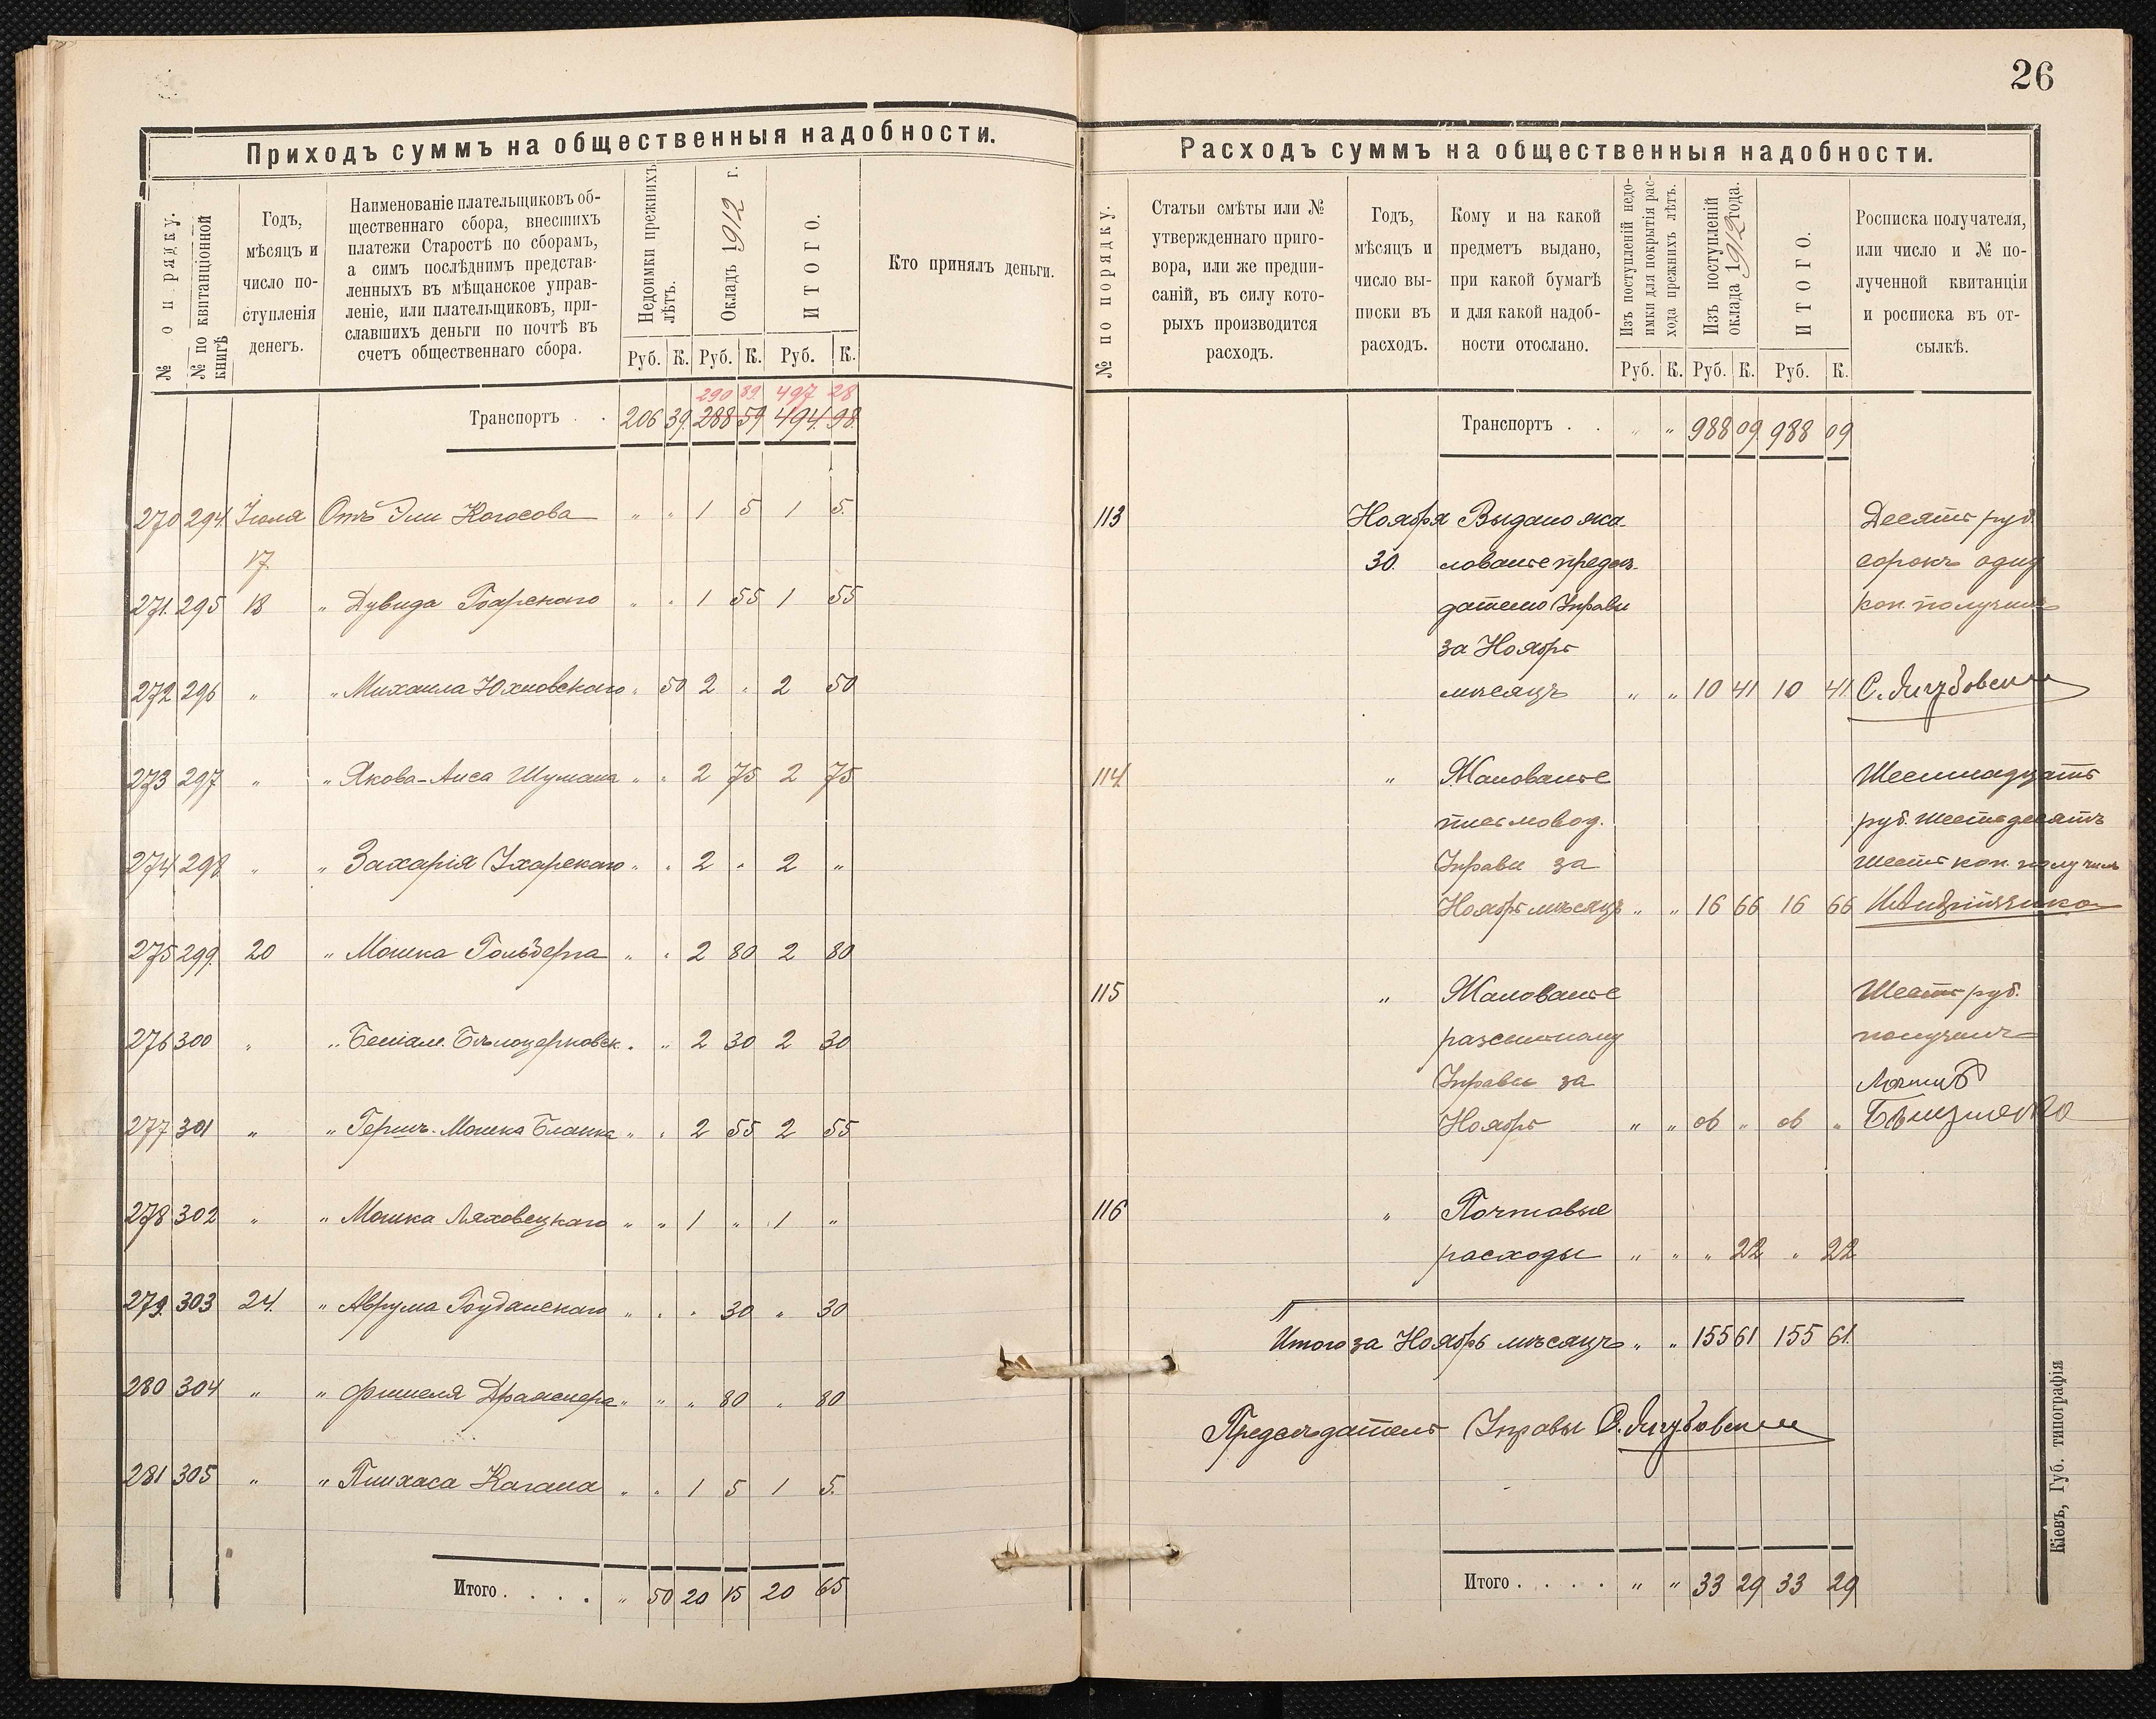 26
Приходъ суммъ на общественныя надобности.
№ по рядку.
№ по квитанціонной книгѣ
Годъ,
мѣсяцъ и
число по-
ступленія
денегъ.
Наименованіе плательщиковъ об-
щественнаго сбора, внесшихъ
платежи Старостѣ по сборамъ,
а симъ послѣднимъ представ-
ленныхъ въ мѣщанское управ-
леніе, или плательщиковъ, при-
славшихъ деньги по почтѣ въ
счетъ общественнаго сбора.
Недоимки прежнихъ
лѣтъ.
Окладъ 1912 г.
ИТОГО.
Кто принялъ деньги.
Руб. К. Руб. К. Руб. К.
290 89 497 28
Транспортъ . . 206 39. 288 59 494 98.
270 294. Іюля Отъ Коѓосова " " 1 5 1 5.
17.
271. 295 18 " Дувида " " 1 55 1 55
272 296 " " Михаила Юхновскаго " 50 2 " 2 50
273 297 " " Якова-Лиса Шумана " " 2 75 2 75
274 298. " " Захарія " " 2 " 2 "
275 299. 20 " Мошка Гольберга " " 2 80 2 80
276 300 " " Беніам. Бѣлоцерковск. " " 2 30 2 30
277 301 " " Гершъ-Мошка Бланка " " 2 55 2 55
278 302 " " Мошка Ляховецкаго " " 1 " 1 "
279. 303 24. " Аврума " " " 30 " 30
280 304 " " Фишеля " " " 80 " 80
281 305 " " Пинхаса Кагана " " 1 5 1 5.
Итого. . . . " 50 20 15 20 65
Расходъ суммъ на общественныя надобности.
№ по порядку.
Статьи смѣты или №
утвержденнаго приго-
вора, или же предпи-
саній, въ силу кото-
рыхъ производится
расходъ.
Годъ,
мѣсяцъ и
число вы-
писки въ
расходъ.
Кому и на какой
предметъ выдано,
при какой бумагѣ
и для какой надоб-
ности отослано.
Изъ поступленій недо-
имки для покрытія рас-
хода прежнихъ лѣтъ.
Изъ поступленій
оклада 1912 года.
ИТОГО.
Росписка получателя,
или число и № по-
лученной квитанціи
и росписка въ от-
сылкѣ.
Руб. К. Руб. К. Руб. К.
Транспортъ . . " " 988 09. 988 09
113 Ноября Выдано жа- Десять руб.
30. лованье предсѣ- сорокъ одну
дателю Управы коп. получилъ
за Ноябрь
мѣсяцъ " " 10 41 10 41
114. " Жалованье Шестнадцать
письмовод. руб. шестьдесятъ
Управы за шесть коп. получилъ
Ноябрь мѣсяцъ " " 16 66 16 66
115 " Жалованье Шесть руб.
разсыльному получилъ
Управы за
Ноябрь " " 6 " 6 "
116 " Почтовые
расходы " " " 22 " 22
Итого за Ноябрь мѣсяцъ " " 155 61 155 61.
Предсѣдатель Управы
Итого. . . . " " 33 29 33 29
Кіевъ, Губ. типографія